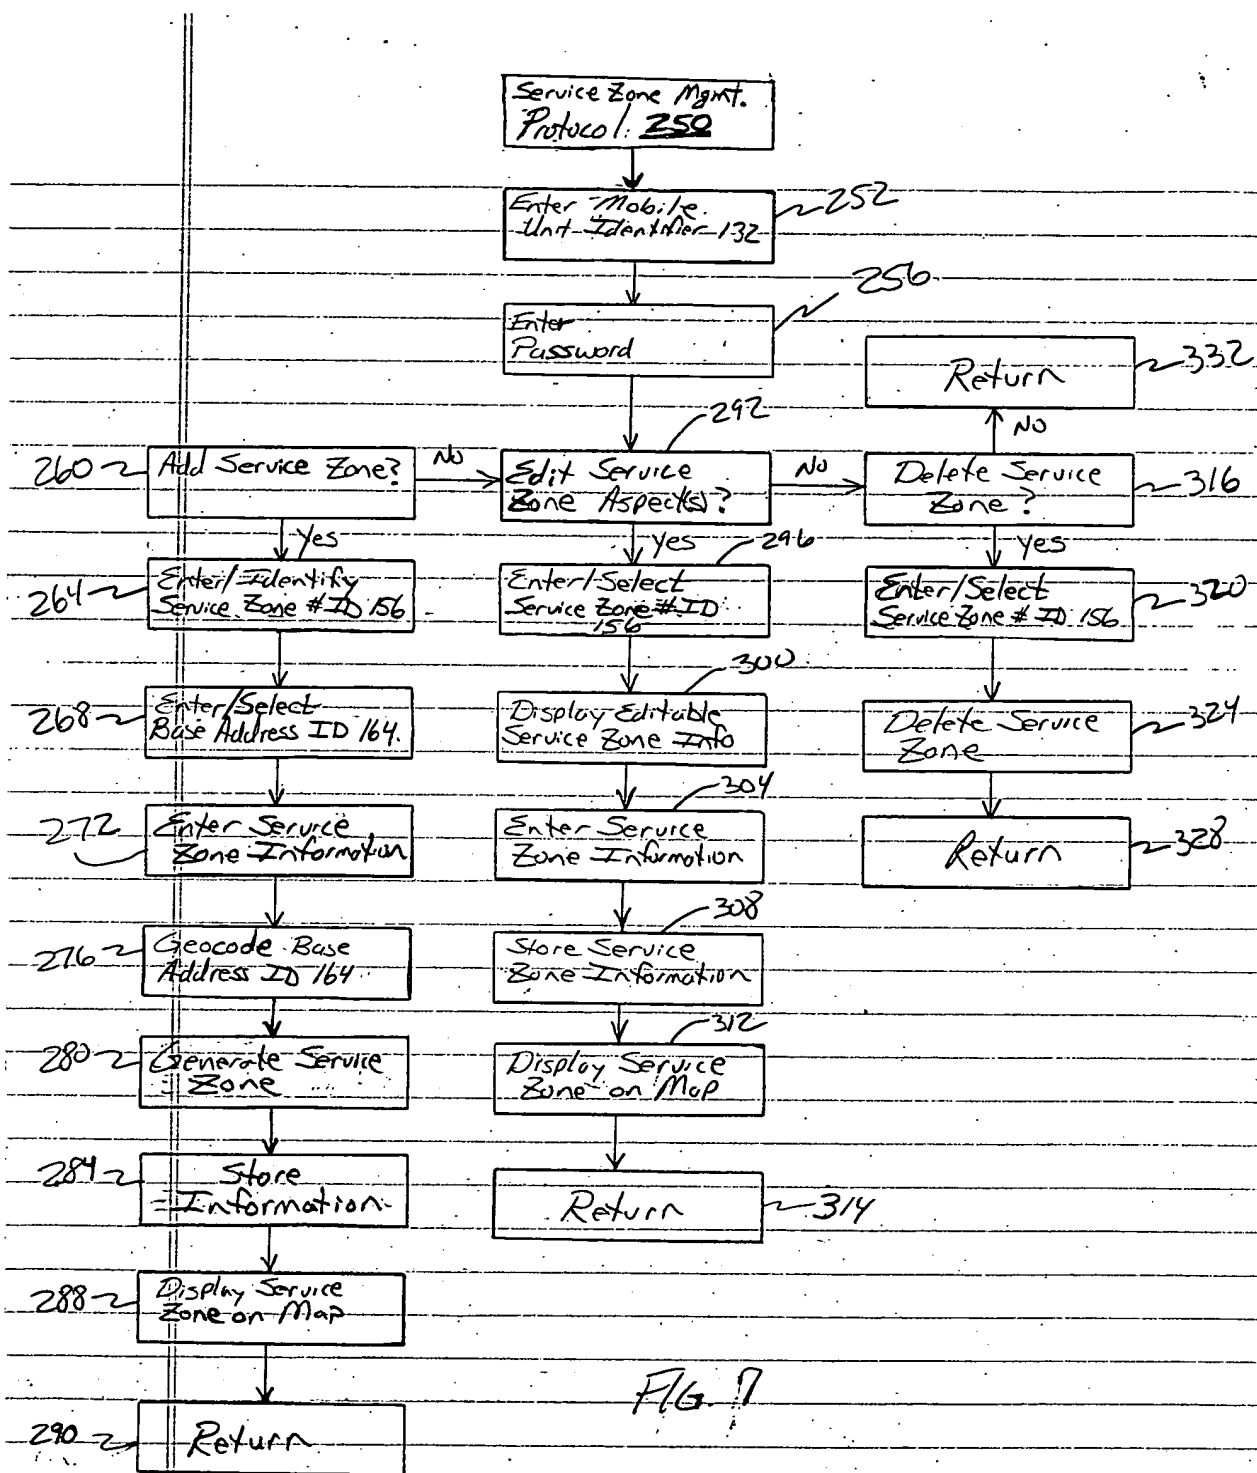 Service Zone Mgmt.
Protocol: 250
Enter Mobile
Unit Identifier 132
252
256
Enter
Password
Return
332
292
No
260
Add Service Zone?
No
Edit Service
Zone Aspect(s)?
No
Delete Service
Zone?
316
Yes
Yes
296
Yes
264
Enter/Identify
Service Zone # ID 156
Enter/Select
Service Zone # ID
156
Enter/Select
Service Zone # ID 156
320
300
268
Enter/Select
Base Address ID 164.
Display Editable
Service Zone Info
Delete Service
Zone
324
304
272
Enter Service
Zone Information
Enter Service
Zone Information
Return
328
308
276
Geocode Base
Address ID 164
Store Service
Zone Information
312
280
Generate Service
Zone
Display Service
Zone on Map
284
Store
Information
Return
314
288
Display Service
Zone on Map
FIG. 7
290
Return